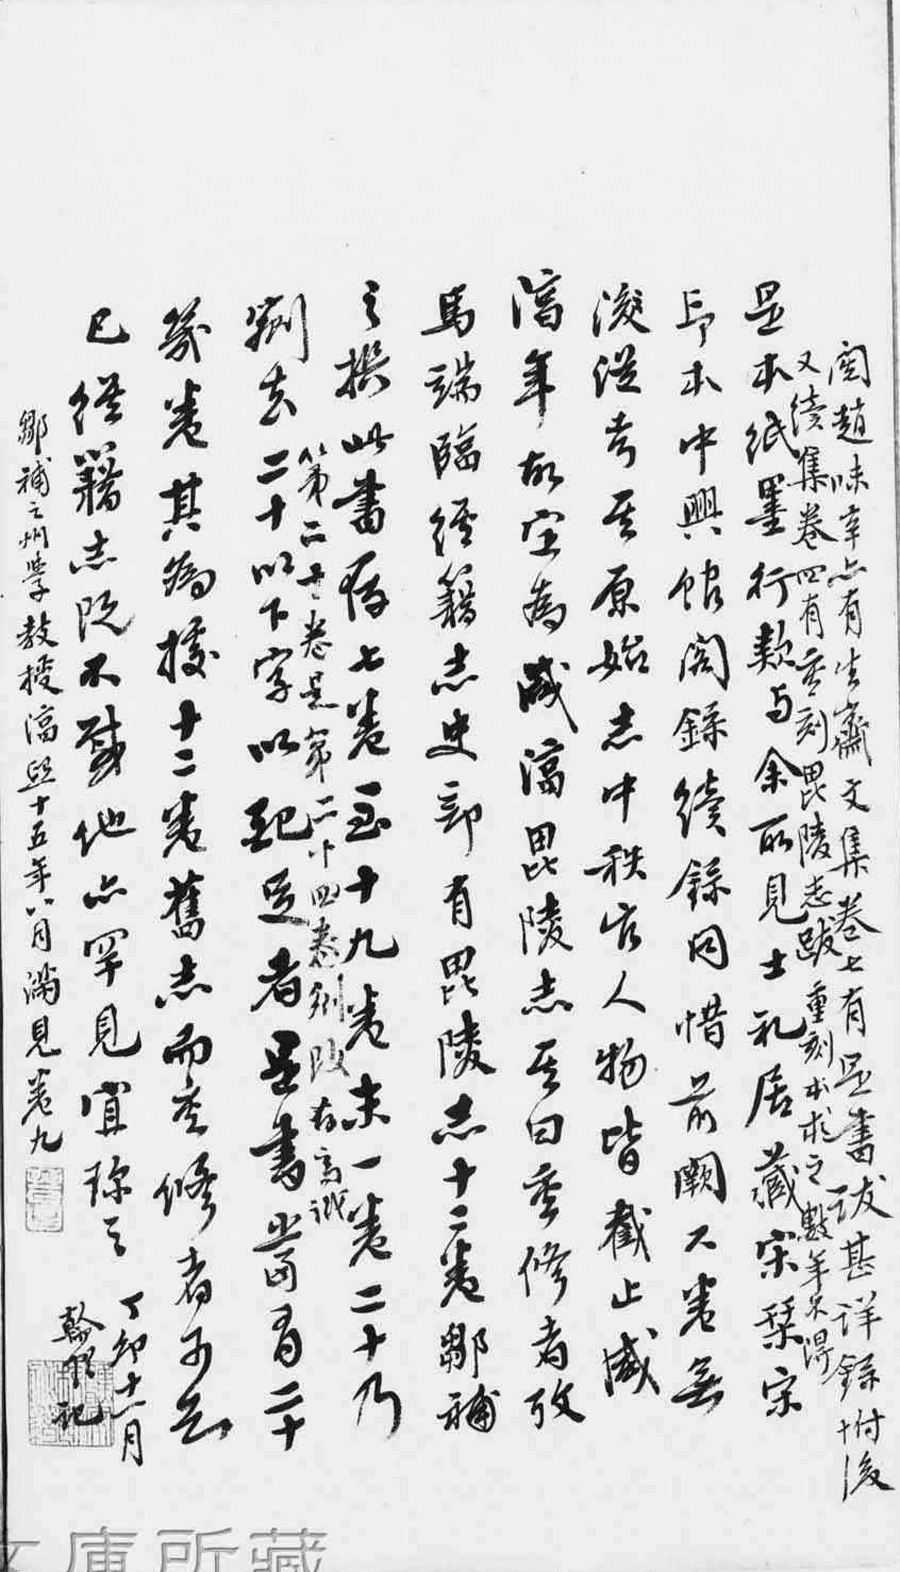 閱趙味辛亦有生齋文集卷七有是書跋甚詳錄附後
又續集卷四有重刻毘陵志跋重刻本求之數年未得
是本紙墨行款与余所見士礼居藏宋槧宋
印本中興館閣錄續錄同惜前闕六卷無
從考其原始志中秩官人物皆截止咸
淳年故定為咸淳毘陵志其曰重修者攷
馬端臨經籍志史部有毘陵志十二卷鄒補
之撰此書存七卷至十九卷末一卷二十乃
剜去二十以下字以配足者是書當有二十
第二十卷是第二十四卷剜改
幾卷其為據十二卷舊志而重修者可知
已經籍志既不載他亦罕見宜珍之
丁卯十一月
翰題記
鄒補之州學教授淳熙十五年八月滿見卷九
文庫所藏